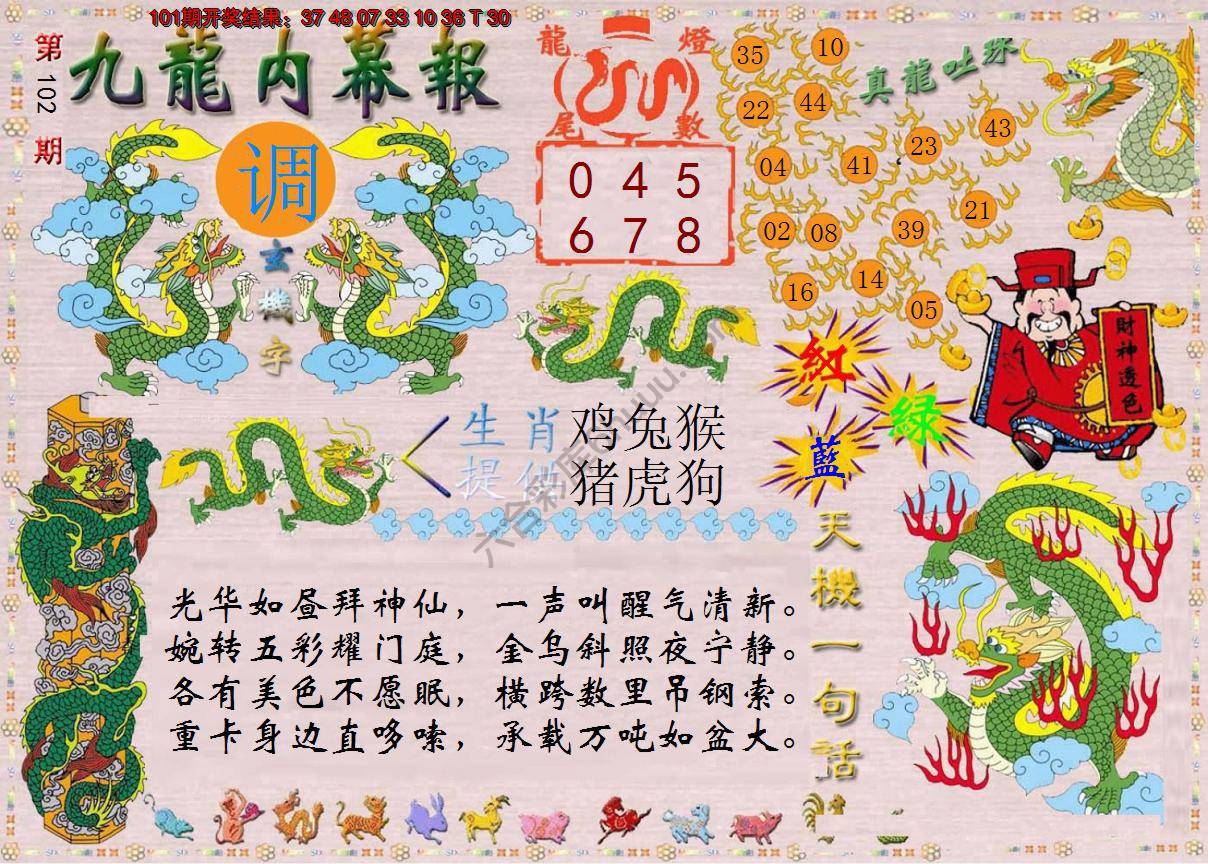 101期开奖结果：37 48 07 33 10 36 T 30
第102期
九龍内幕報
调
玄機字
龍燈
尾數
0 4 5
6 7 8
真龍吐珠
35 10
22 44
04 41 23 43
02 08 39 21
16 14 05
財神透色
紅
綠
藍
生肖 鸡兔猴
提供 猪虎狗
天機一句話
光华如昼拜神仙，一声叫醒气清新。
婉转五彩耀门庭，金乌斜照夜宁静。
各有美色不愿眠，横跨数里吊钢索。
重卡身边直哆嗦，承载万吨如盆大。